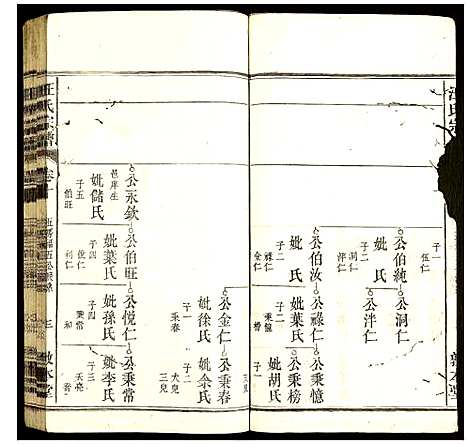 汪氏宗
子一
伍仁
公伯純
子二
洞仁
泮仁
公洞仁
公泮仁
公伯汝
妣 氏
子二
祿仁
金仁
公祿仁
妣葉氏
子二
公秉憶
公秉榜
妣胡氏
子一
敦本堂
公金仁
妣徐氏
子一
秉春
公秉春
妣余氏
子三
大兒
三兒
公永欽
邑庠生
妣儲氏
子五
伯旺
公伯旺
妣葉氏
子四
悦仁
公悦仁
妣孫氏
子四
秉常
和
公秉常
妣李氏
子三
天亮
汪氏宗譜
卷十
三
敦本堂